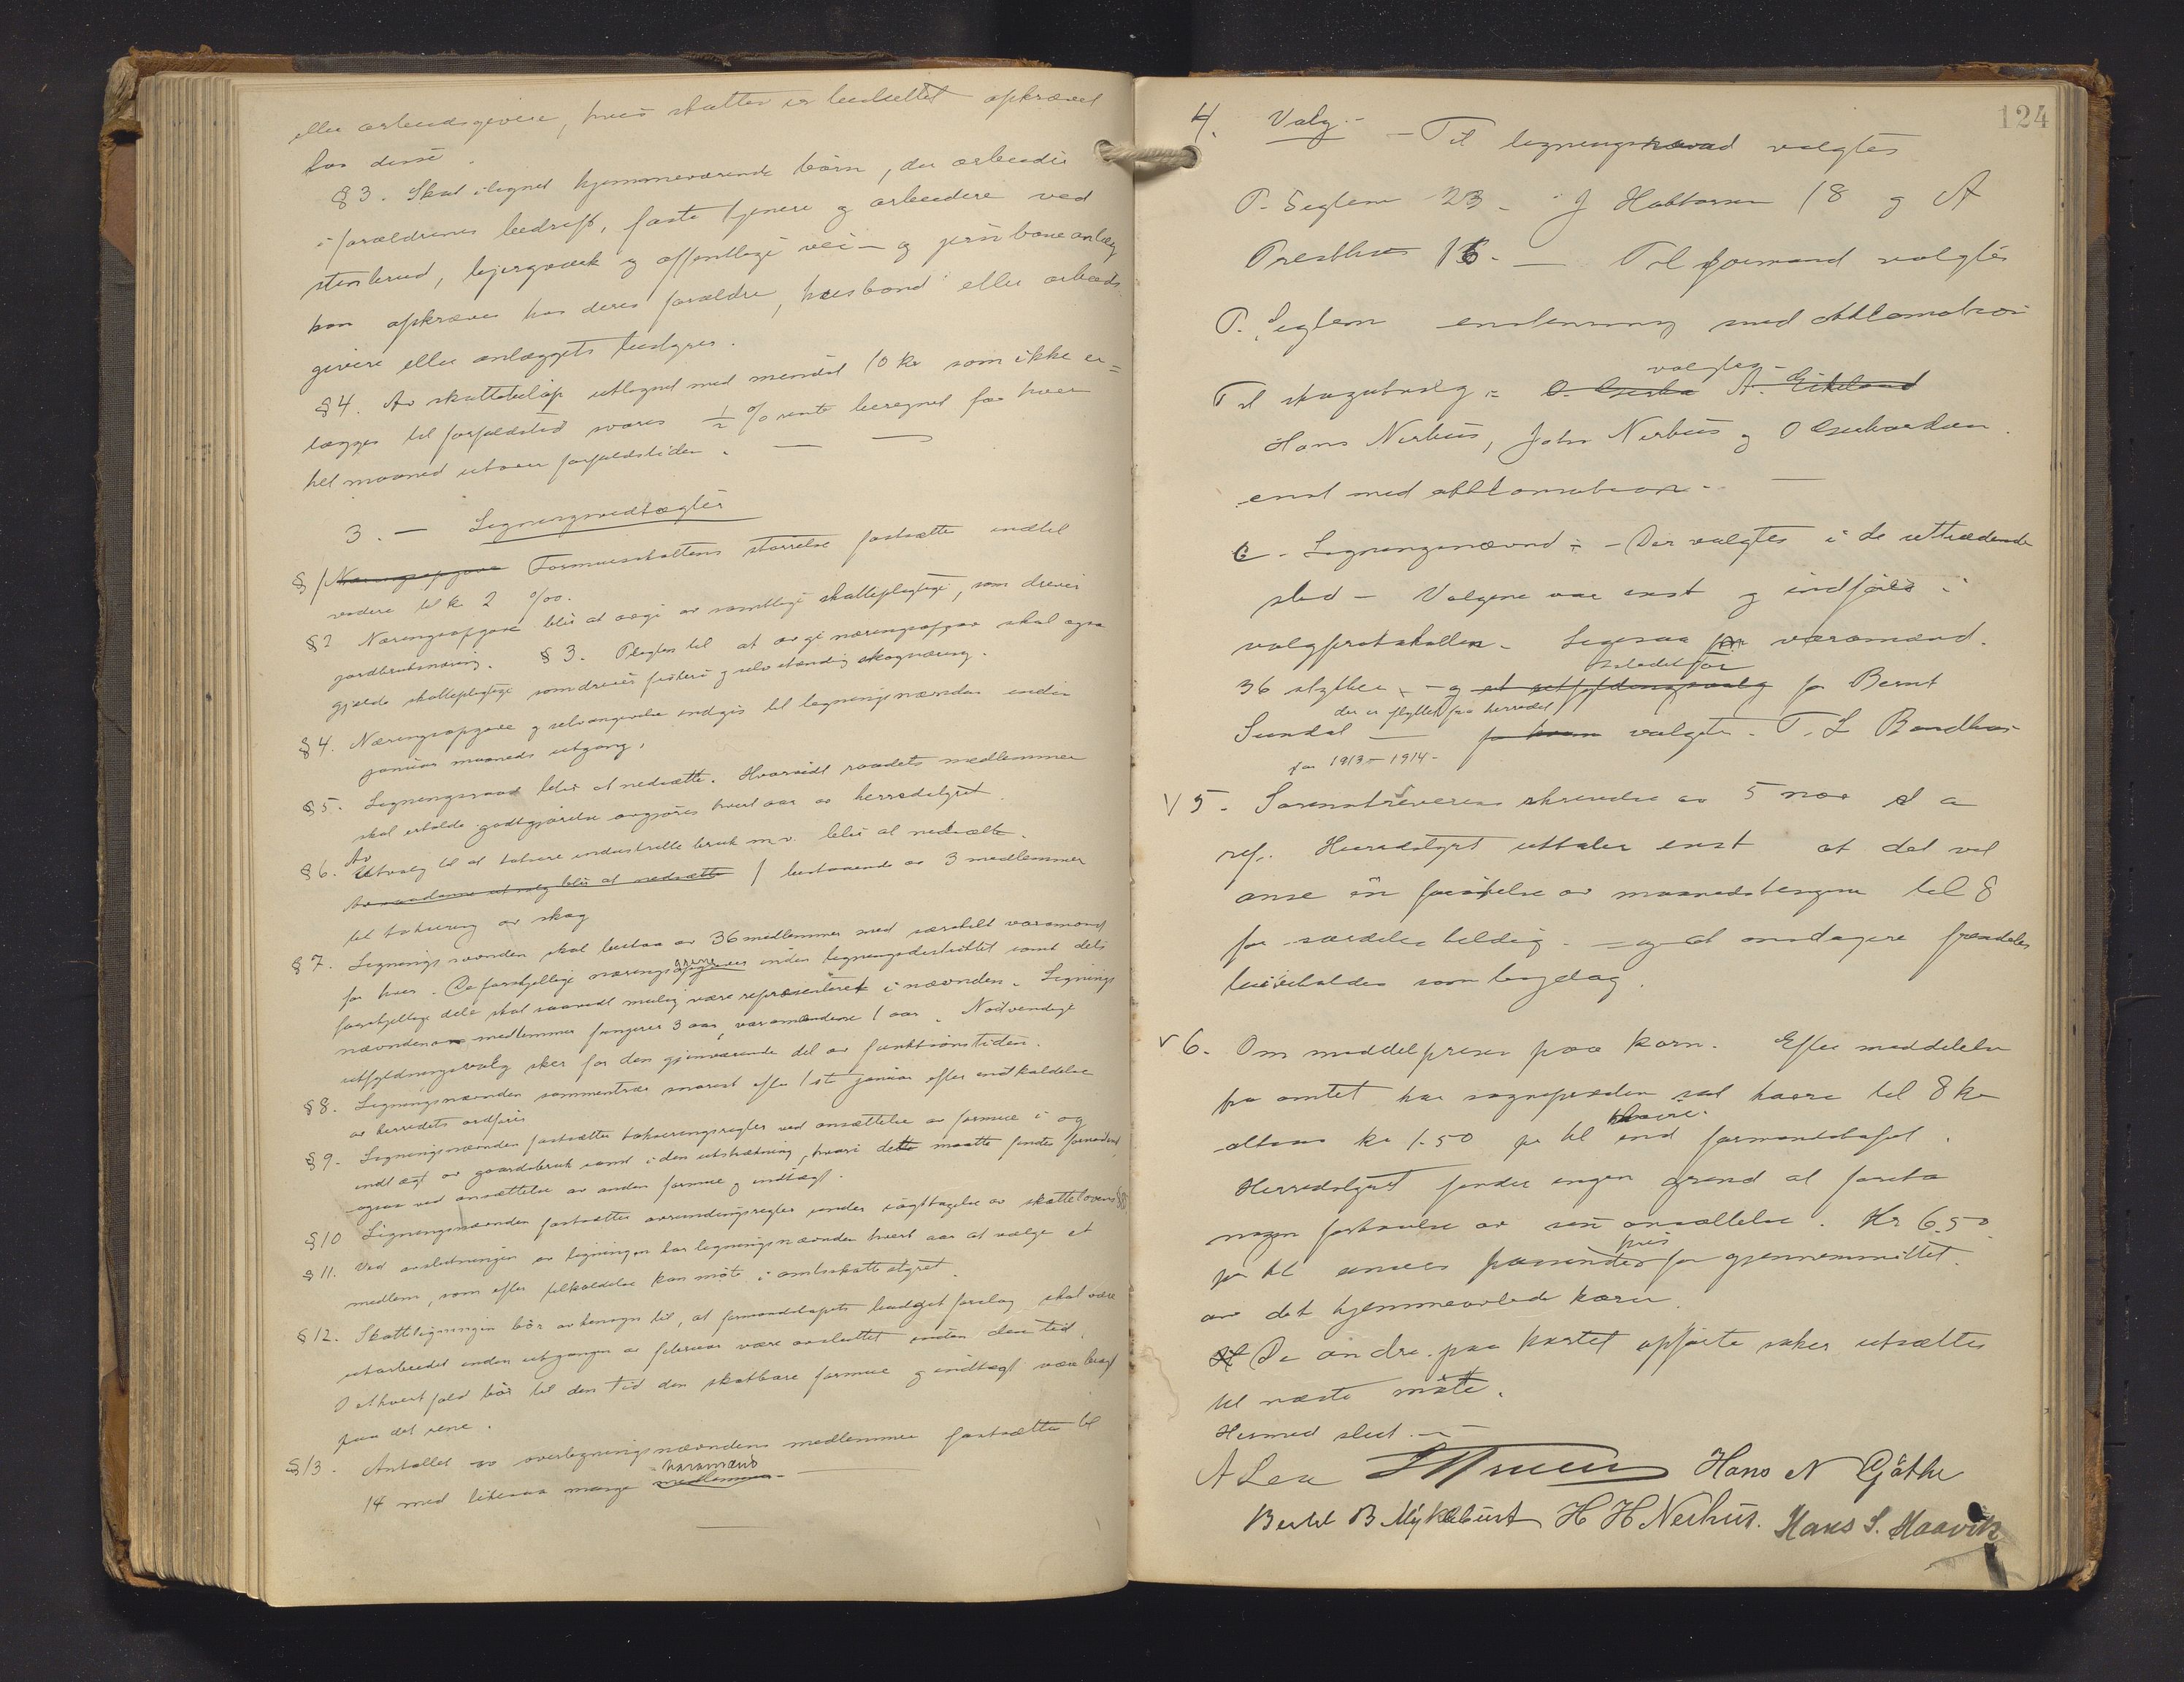 eller arbeidsgivere, hvis skatten er besluttet opkrævet
hos disse.
§ 3. Skat ilignet hjemmeværende børn, der arbeider
i forældrenes bedrift, faste tjenere og arbeidere ved
stenbrud, bjergverk og offentlige vei- og jernbaneanlæg
kan opkræves hos deres forældre, husbond eller arbeids
givere eller anlæggets bestyrer.
§ 4. Av skattebeløp utlignet med mindst 10 kr som ikke er=
lægges til forfaldstid svares ½ % rente beregnet for hver
hel maaned utover forfaldstiden.
3. — Ligningsvedtægter
§ 1 Næringsopgave Formueskattens størrelse fastsættes indtil
videre til kr 2 ‰.
§ 2 Næringsopgave blir at avgi av samtlige skattepligtige, som driver
jordbruksnæring. § 3. Pligten til at avgi næringsopgave skal ogsaa
gjælde skattepligtige som driver fiskeri og selvstændig skognæring.
§ 4. Næringsopgave og selvangivelse indgis til ligningsnævnden inden
januar maaneds utgang.
§ 5. Ligningsraad blir at nedsætte. Hvorvidt raadets medlemmer
skal erholde godtgjørelse avgjøres hvert aar av herredstyret.
§ 6. Av Utvalg til at taksere industrielle bruk m.v. blir at nedsætte.
Av saadanne utvalg blir at nedsætte 1 bestaaende av 3 medlemmer
til taksering av skog
§ 7. Ligningsnævnden skal bestaa av 36 medlemmer med særskilt varamand
for hver. De forskjellige næringsgrene inden ligningsdistriktet samt dets
forskjellige dele skal saavidt mulig være repræsenteret i nævnden. Lignings
nævndens medlemmer fungerer 3 aar, varamændene 1 aar. Nødvendige
utfyldningsvalg sker for den gjenværende del av funktionstiden.
§ 8. Ligningsnævnden sammentræder snarest efter 1ste januar efter indkaldelse
av herredets ordfører
§ 9. Ligningsnævnden fastsætter takseringsregler ved ansættelse av formue i og
indtægt av gaardsbruk samt i den utstrækning, hvori dette maatte findes fornødent,
ogsaa ved ansættelse av anden formue og indtægt.
§ 10 Ligningsnævnden fastsætter avrundingsregler under iagttagelse av skattelovens §
§ 11. Ved avslutningen av ligningen har ligningsnævnden hvert aar at vælge et
medlem, som efter tilkaldelse kan møte i amtsskattestyret.
§ 12. Skatteligningen bør av hensyn til, at formandskapets budgetforslag skal være
utarbeidet inden utgangen av februar være avsluttet inden den tid.
I ethvert fald bør til den tid den skatbare formue og indtægt være bragt
paa det rene.
§ 13. Antallet av overligningsnævndens medlemmer fastsættes til
14 med likesaa mange varamænd medlemmer
124
4. Valg.— Til ligningsraad valgtes
P. Seglem 23 — J Habtorsen 18 og A
Presthus 16. — Til formand valgtes
P. Seglem enstemmig med akklamation
Til skogutvalg = valgtes O. A. Eikeland
Hans Nerhus, John Nerhus og O
enst med akklamation.
C. Ligningsnævnd: — Der valgtes i de uttrædende
sted — Valgene var enst og indføres i
valgprotokollen. Ligesaa for varamænd.
36 stykker — og istedetfor et utfyldningsvalg for Bernt
Sundal der er flyttet fra herredet for hvem valgtes T. L Bondhus
for 1913–1914.
V 5. Sorenskriverens skrivelse av 5 nov d a
ref. Herredstyret uttaler enst at det vil
anse en forøkelse av maanedstingene til 8
for særdeles heldig. — og at onsdagene fremdeles
bibeholdes som tingdag.
V 6. Om middelprisen paa korn. Efter meddelelse
fra amtet har sognepræsten sat havre til 8 kr
altsaa kr 1.50 pr hl høiere end formandskapet.
Herredstyret finder ingen grund at foreta
nogen forhøielse av sin ansættelse. Kr 6.50
pr hl ansees passende pris for gjennemsnittet
av det hjemmeavlede korn.
De andre paa kartet opførte saker utsættes
til næste møte.
Hermed slut.—
A Lea Hans N Gjøthe
Bertel B Myklebust H H Nerhus. Hans S. Haavik